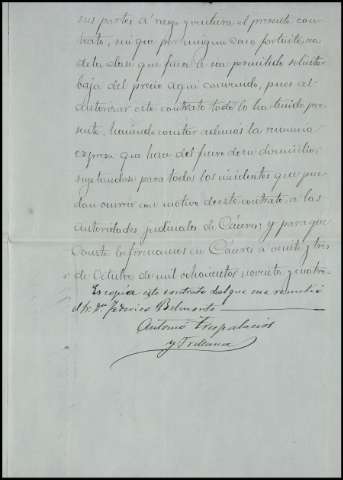 sus partes á riesgo y ventura el presente con-
trato, sin que por ningun caso fortuito, sea
de la clase que fuere le sea permitido solicitar
baja del precio aqui convenido, pues al
autorizar este contrato todo lo ha tenido pre-
sente, haciendo constar ademas la renuncia
expresa que hace del fuero de su domicilio,
sugetandose para todos los incidentes que pue-
dan ocurrir con motivo de este contrato, a las
autoridades judiciales de Cáceres, y para que
conste lo firmamos en Cáceres á veinte y tres
de Octubre de mil ochocientos noventa y cuatro.
Es copia este contrato del que me remitió
el Sr. Dn. Federico Belmonte
Antonio Trespalacios
y